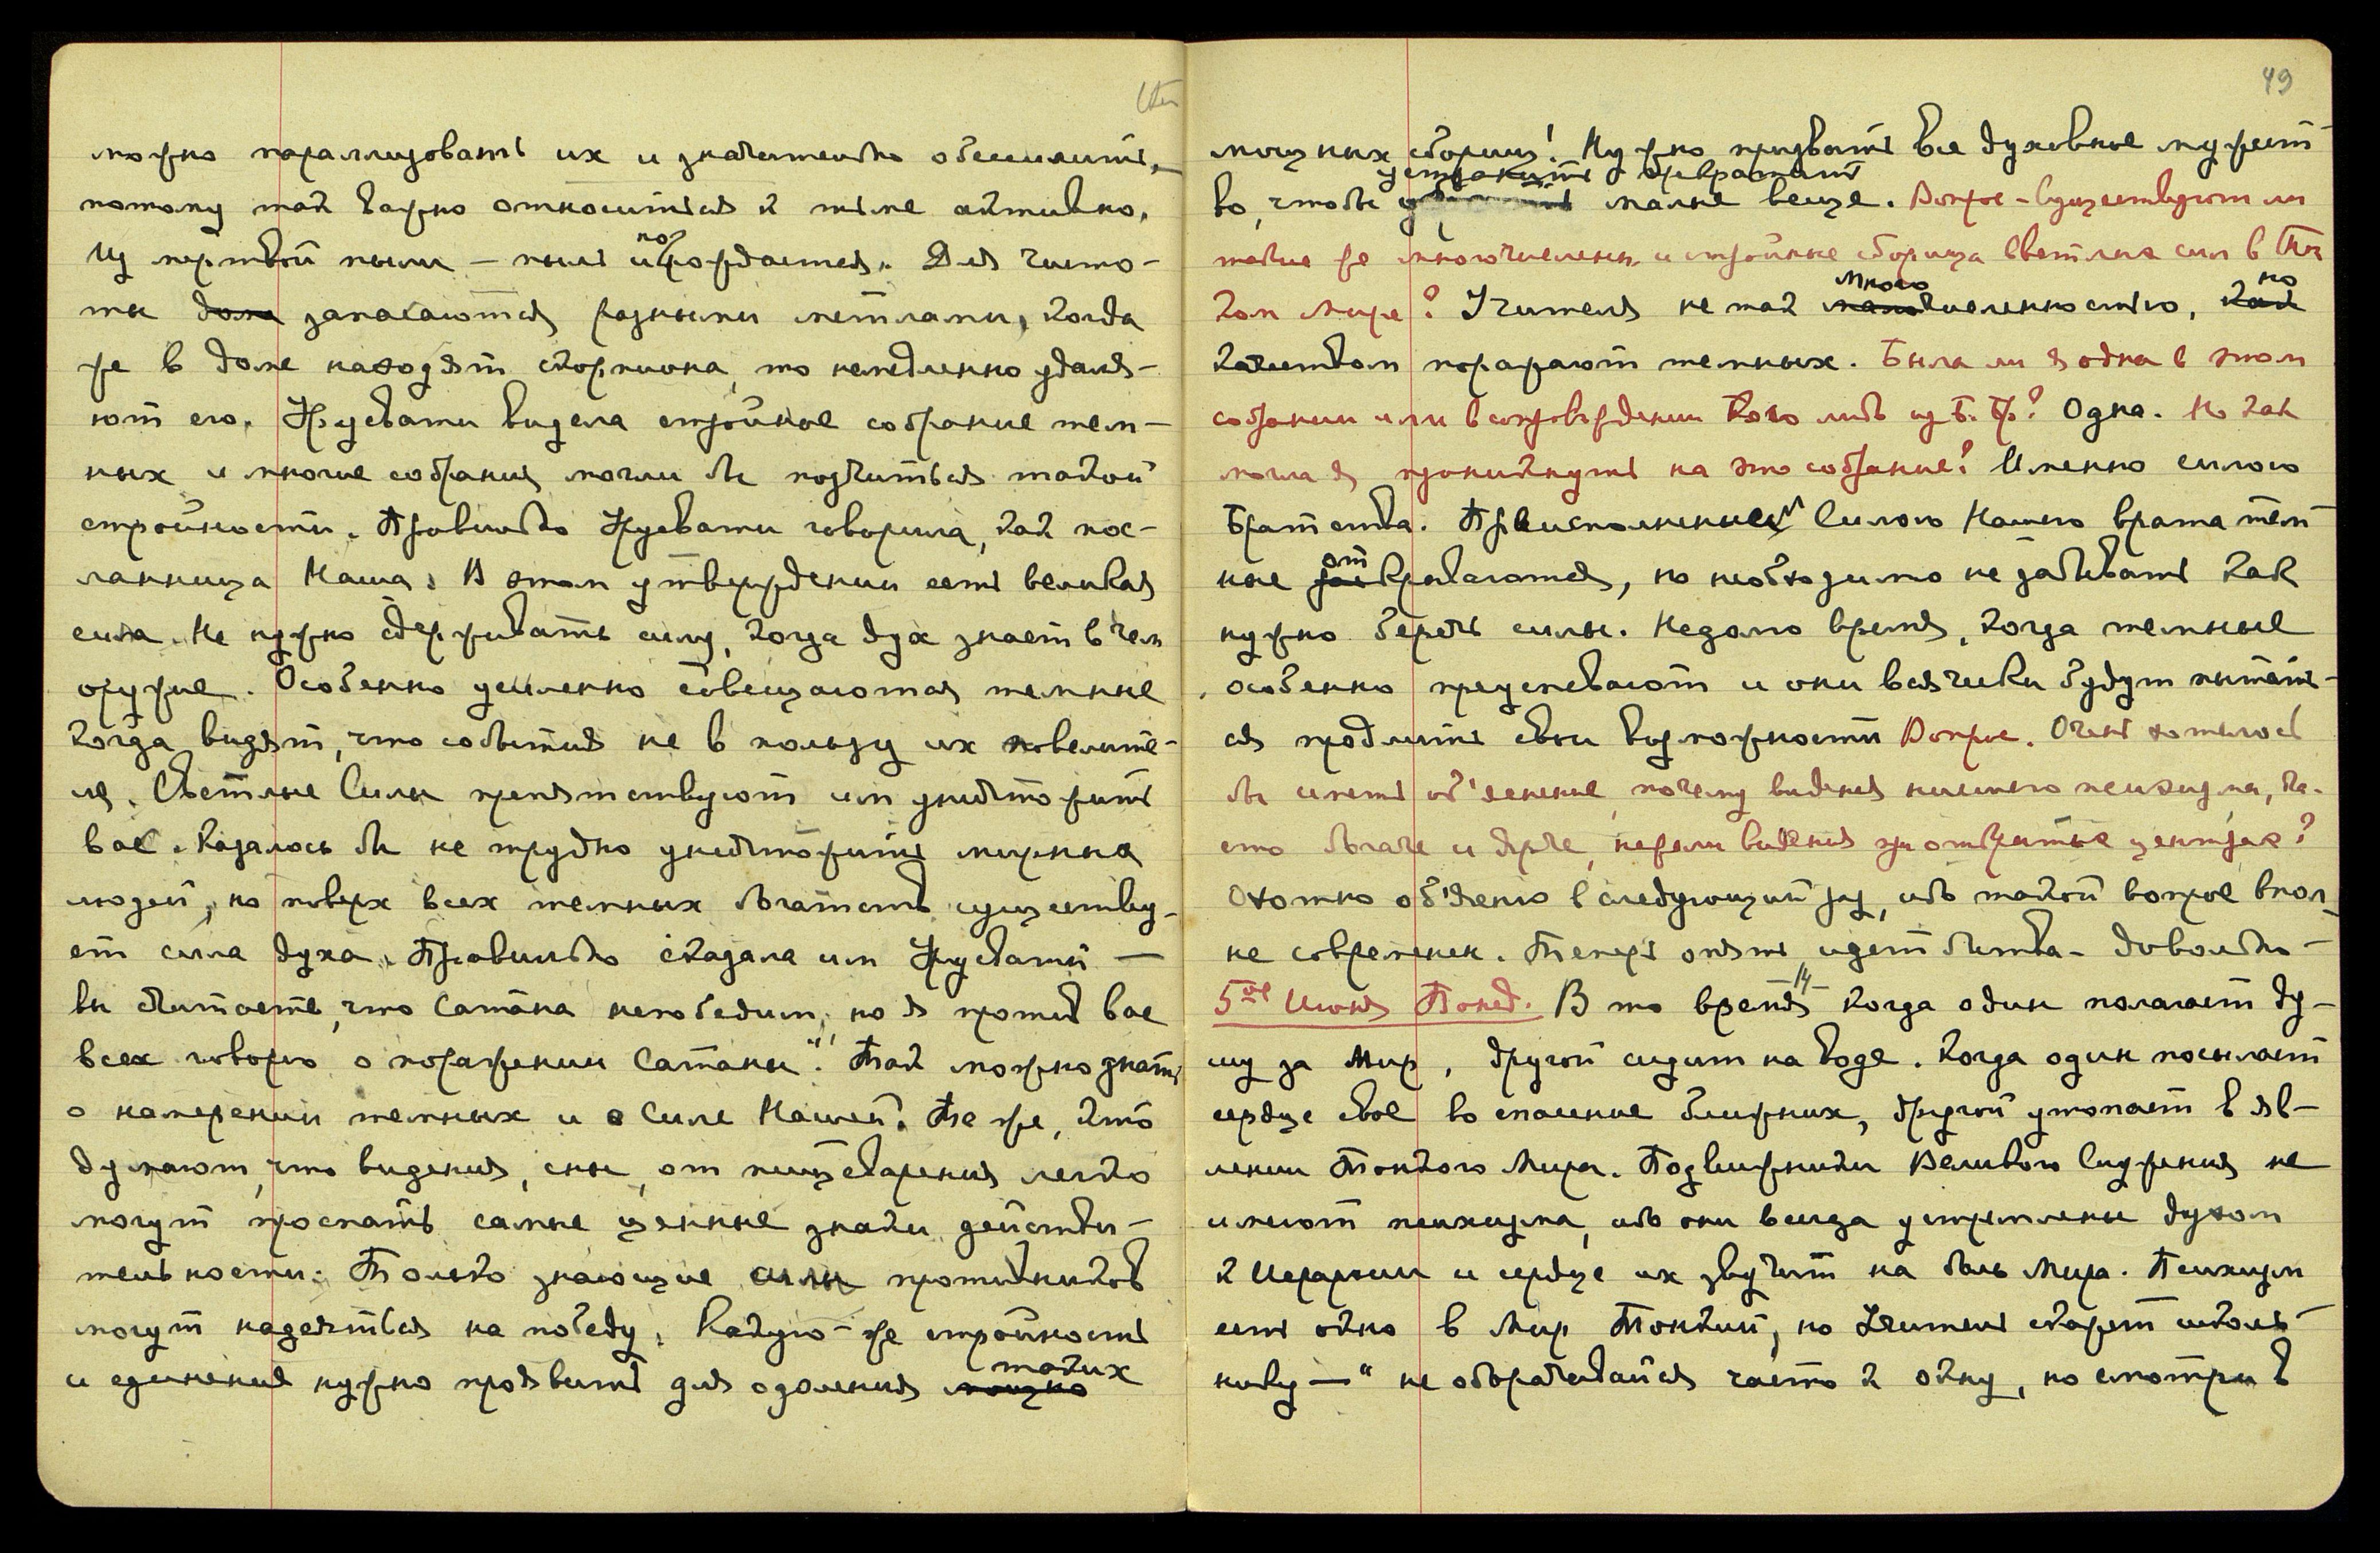 можно парализовать их и значительно обессилить,
потому так важно относиться к тьме активно.
Из мертвой пыли — пыль и порождается. Для чисто-
ты дома запасаются разными метлами, когда
же в доме находят скорпиона, то немедленно удаля-
ют его. Урусвати видела стройное собрание тем-
ных и многие собрания могли бы поучиться такой
стройности. Правильно Урусвати говорила, как пос-
ланница Наша. В этом утверждении есть великая
сила. Не нужно сдерживать силу, когда дух знает в чем
оружие. Особенно усиленно совещаются темные
когда видят, что события не в пользу их повелите-
ля. Светлые Силы препятствуют им уничтожить
вас. Казалось бы не трудно уничтожить мирных
людей, но поверх всех темных богатств существу-
ет сила духа. Правильно сказала им Урусвати —
вы считаете, что Сатана непобедим, но я против вас
всех говорю о поражении Сатаны". Так можно знать
о намерении темных и о Силе Нашей. Те же, кто
думают, что видения, сны, от пищеварения легко
могут проспать самые ценные знаки действи-
тельности. Только знающие силы противников
могут надеяться на победу. Какую-же стройность
и единение нужно проявить для одоления мощно таких
49
мощных сборищ! Нужно призвать все духовное мужест
во, чтобы устранить малые вещи. Вопрос - Существуют ли
такие же многочислены. и стройные сборища светлых сил в Тон
ком Мире? Учителя не так многочисленностью, но
качеством поражают темных. Была ли я одна в этом
собрании или в сопровождении Кого либо из Б. Бр? Одна. Но как
могла я проникнуть на это собрание? Именно силою
Братства. Преисполненным Силою Нашею врата тем
ные открываются, но необходимо не забывать как
нужно беречь силы. Недолго время, когда темные
особенно преуспевают и они всячески будут пытать-
ся продлить свои возможности Вопрос. Очень хотелось
бы иметь об'яснение, почему видения низшего психизма, ча-
сто богаче и ярче, нежели видения при открытых центрах?
Охотно об'ясню в следующий раз, ибо такой вопрос впол-
не современен. Теперь опять идет битва - довольно -
5ое Июня Понед. В то время когда один полагает ду-
шу за Мир, другой сидит на воде. Когда один посылает
сердце свое во спасение ближних, другой утопает в яв-
лении Тонкого Мира. Подвижники Великого Служения не
имеют психизма, ибо они всегда устремлены духом
к Иерархии и сердце их звучит на боль Мира. Психизм
есть окно в Мир Тонкий, но Учитель скажет школь-
нику — " не оборачивайся часто к окну, но смотри в